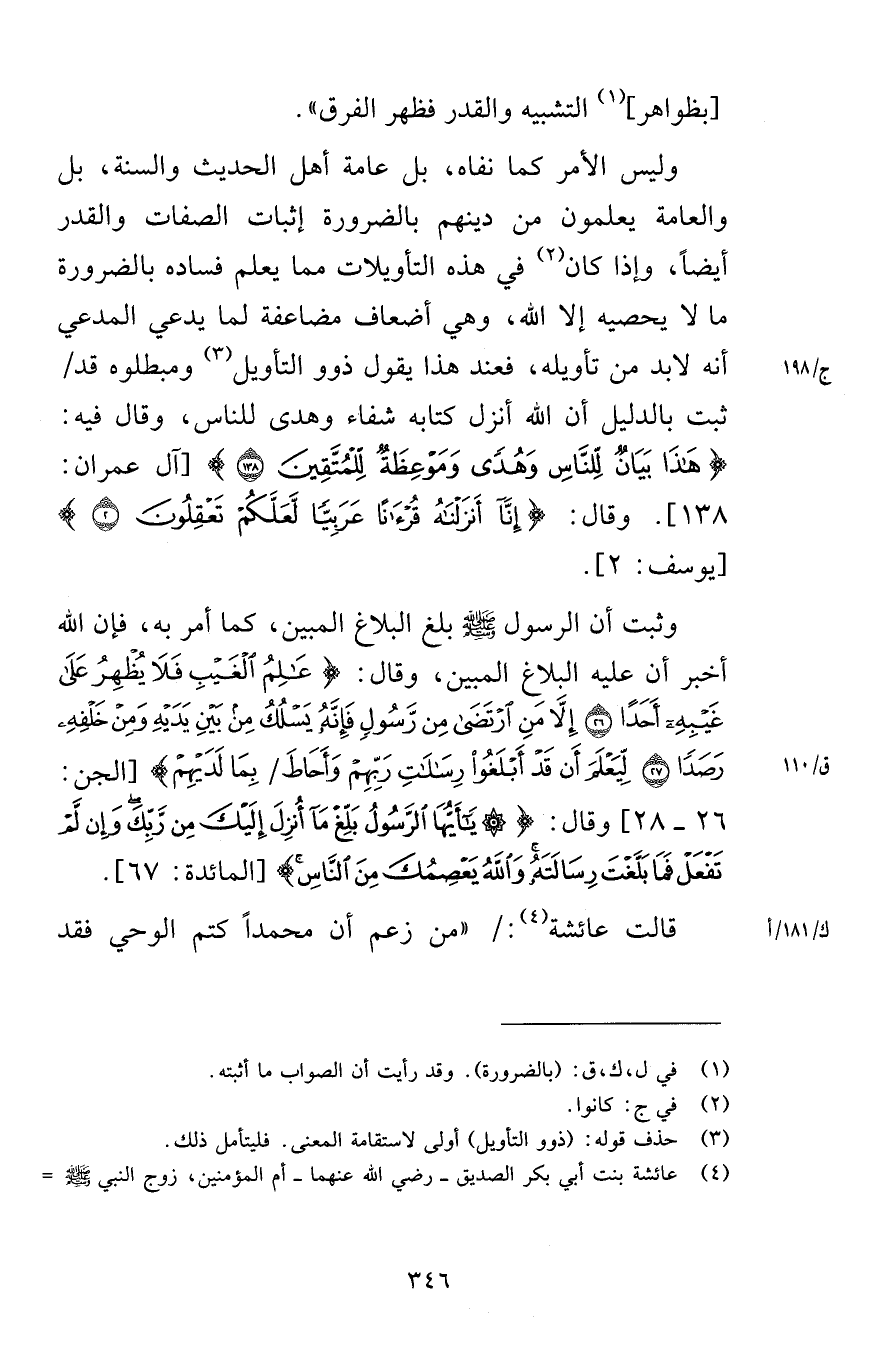 [بظواهر](١) التشبيه والقدر فظهر الفرق».
وليس الأمر كما نفاه، بل عامة أهل الحديث والسنة، بل
والعامة يعلمون من دينهم بالضرورة إثبات الصفات والقدر
أيضاً، وإذا كان(٢) في هذه التأويلات مما يعلم فساده بالضرورة
ما لا يحصيه إلا الله، وهي أضعاف مضاعفة لما يدعي المدعي
أنه لابد من تأويله، فعند هذا يقول ذوو التأويل(٣) ومبطلوه قد/
ج/١٩٨
ثبت بالدليل أن الله أنزل كتابه شفاء وهدى للناس، وقال فيه:
﴿ هَٰذَا بَيَانٌ لِّلنَّاسِ وَهُدًى وَمَوْعِظَةٌ لِّلْمُتَّقِينَ ١٣٨ ﴾ [آل عمران:
١٣٨]. وقال: ﴿ إِنَّآ أَنزَلْنَٰهُ قُرْءَٰنًا عَرَبِيًّا لَّعَلَّكُمْ تَعْقِلُونَ ٢ ﴾
[يوسف: ٢].
وثبت أن الرسول ﷺ بلغ البلاغ المبين، كما أمر به، فإن الله
أخبر أن عليه البلاغ المبين، وقال: ﴿ عَٰلِمُ ٱلْغَيْبِ فَلَا يُظْهِرُ عَلَىٰ
غَيْبِهِۦٓ أَحَدًا ٢٦ إِلَّا مَنِ ٱرْتَضَىٰ مِن رَّسُولٍ فَإِنَّهُۥ يَسْلُكُ مِنۢ بَيْنِ يَدَيْهِ وَمِنْ خَلْفِهِۦ
رَصَدًا ٢٧ لِّيَعْلَمَ أَن قَدْ أَبْلَغُوا۟ رِسَٰلَٰتِ رَبِّهِمْ وَأَحَاطَ/ بِمَا لَدَيْهِمْ ﴾ [الجن:
ق/١١٠
٢٦ ـ ٢٨] وقال: ﴿ ۞ يَٰٓأَيُّهَا ٱلرَّسُولُ بَلِّغْ مَآ أُنزِلَ إِلَيْكَ مِن رَّبِّكَ ۖ وَإِن لَّمْ
تَفْعَلْ فَمَا بَلَّغْتَ رِسَالَتَهُۥ ۚ وَٱللَّهُ يَعْصِمُكَ مِنَ ٱلنَّاسِ ۗ﴾ [المائدة: ٦٧].
قالت عائشة(٤):/ «من زعم أن محمداً كتم الوحي فقد
ك/١٨١/أ
(١) في ل،ك،ق: (بالضرورة). وقد رأيت أن الصواب ما أثبته.
(٢) في ج: كانوا.
(٣) حذف قوله: (ذوو التأويل) أولى لاستقامة المعنى. فليتأمل ذلك.
(٤) عائشة بنت أبي بكر الصديق ـ رضي الله عنهما ـ أم المؤمنين، زوج النبي ﷺ =
٣٤٦